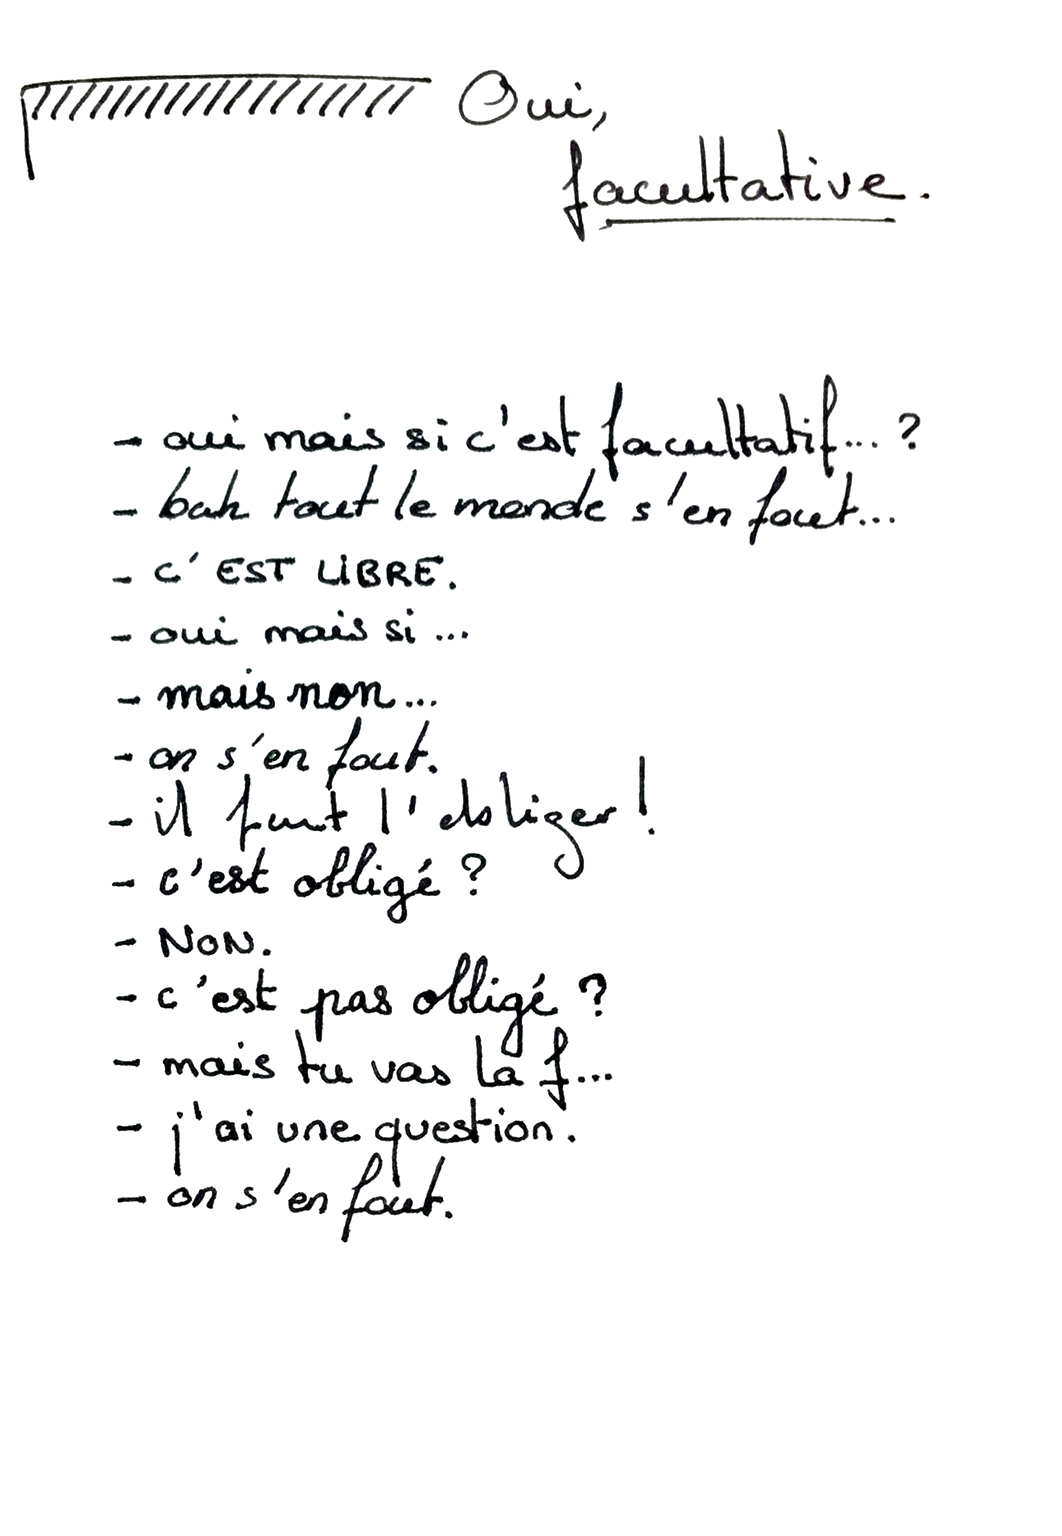 Oui,
facultative.
- oui mais si c'est facultatif... ?
- bah tout le monde s'en fout...
- C'EST LIBRE.
- oui mais si ...
- mais non...
- on s'en fout.
- il faut l'obliger !
- c'est obligé ?
- NON.
- c'est pas obligé ?
- mais tu vas la f...
- j'ai une question.
- on s'en fout.